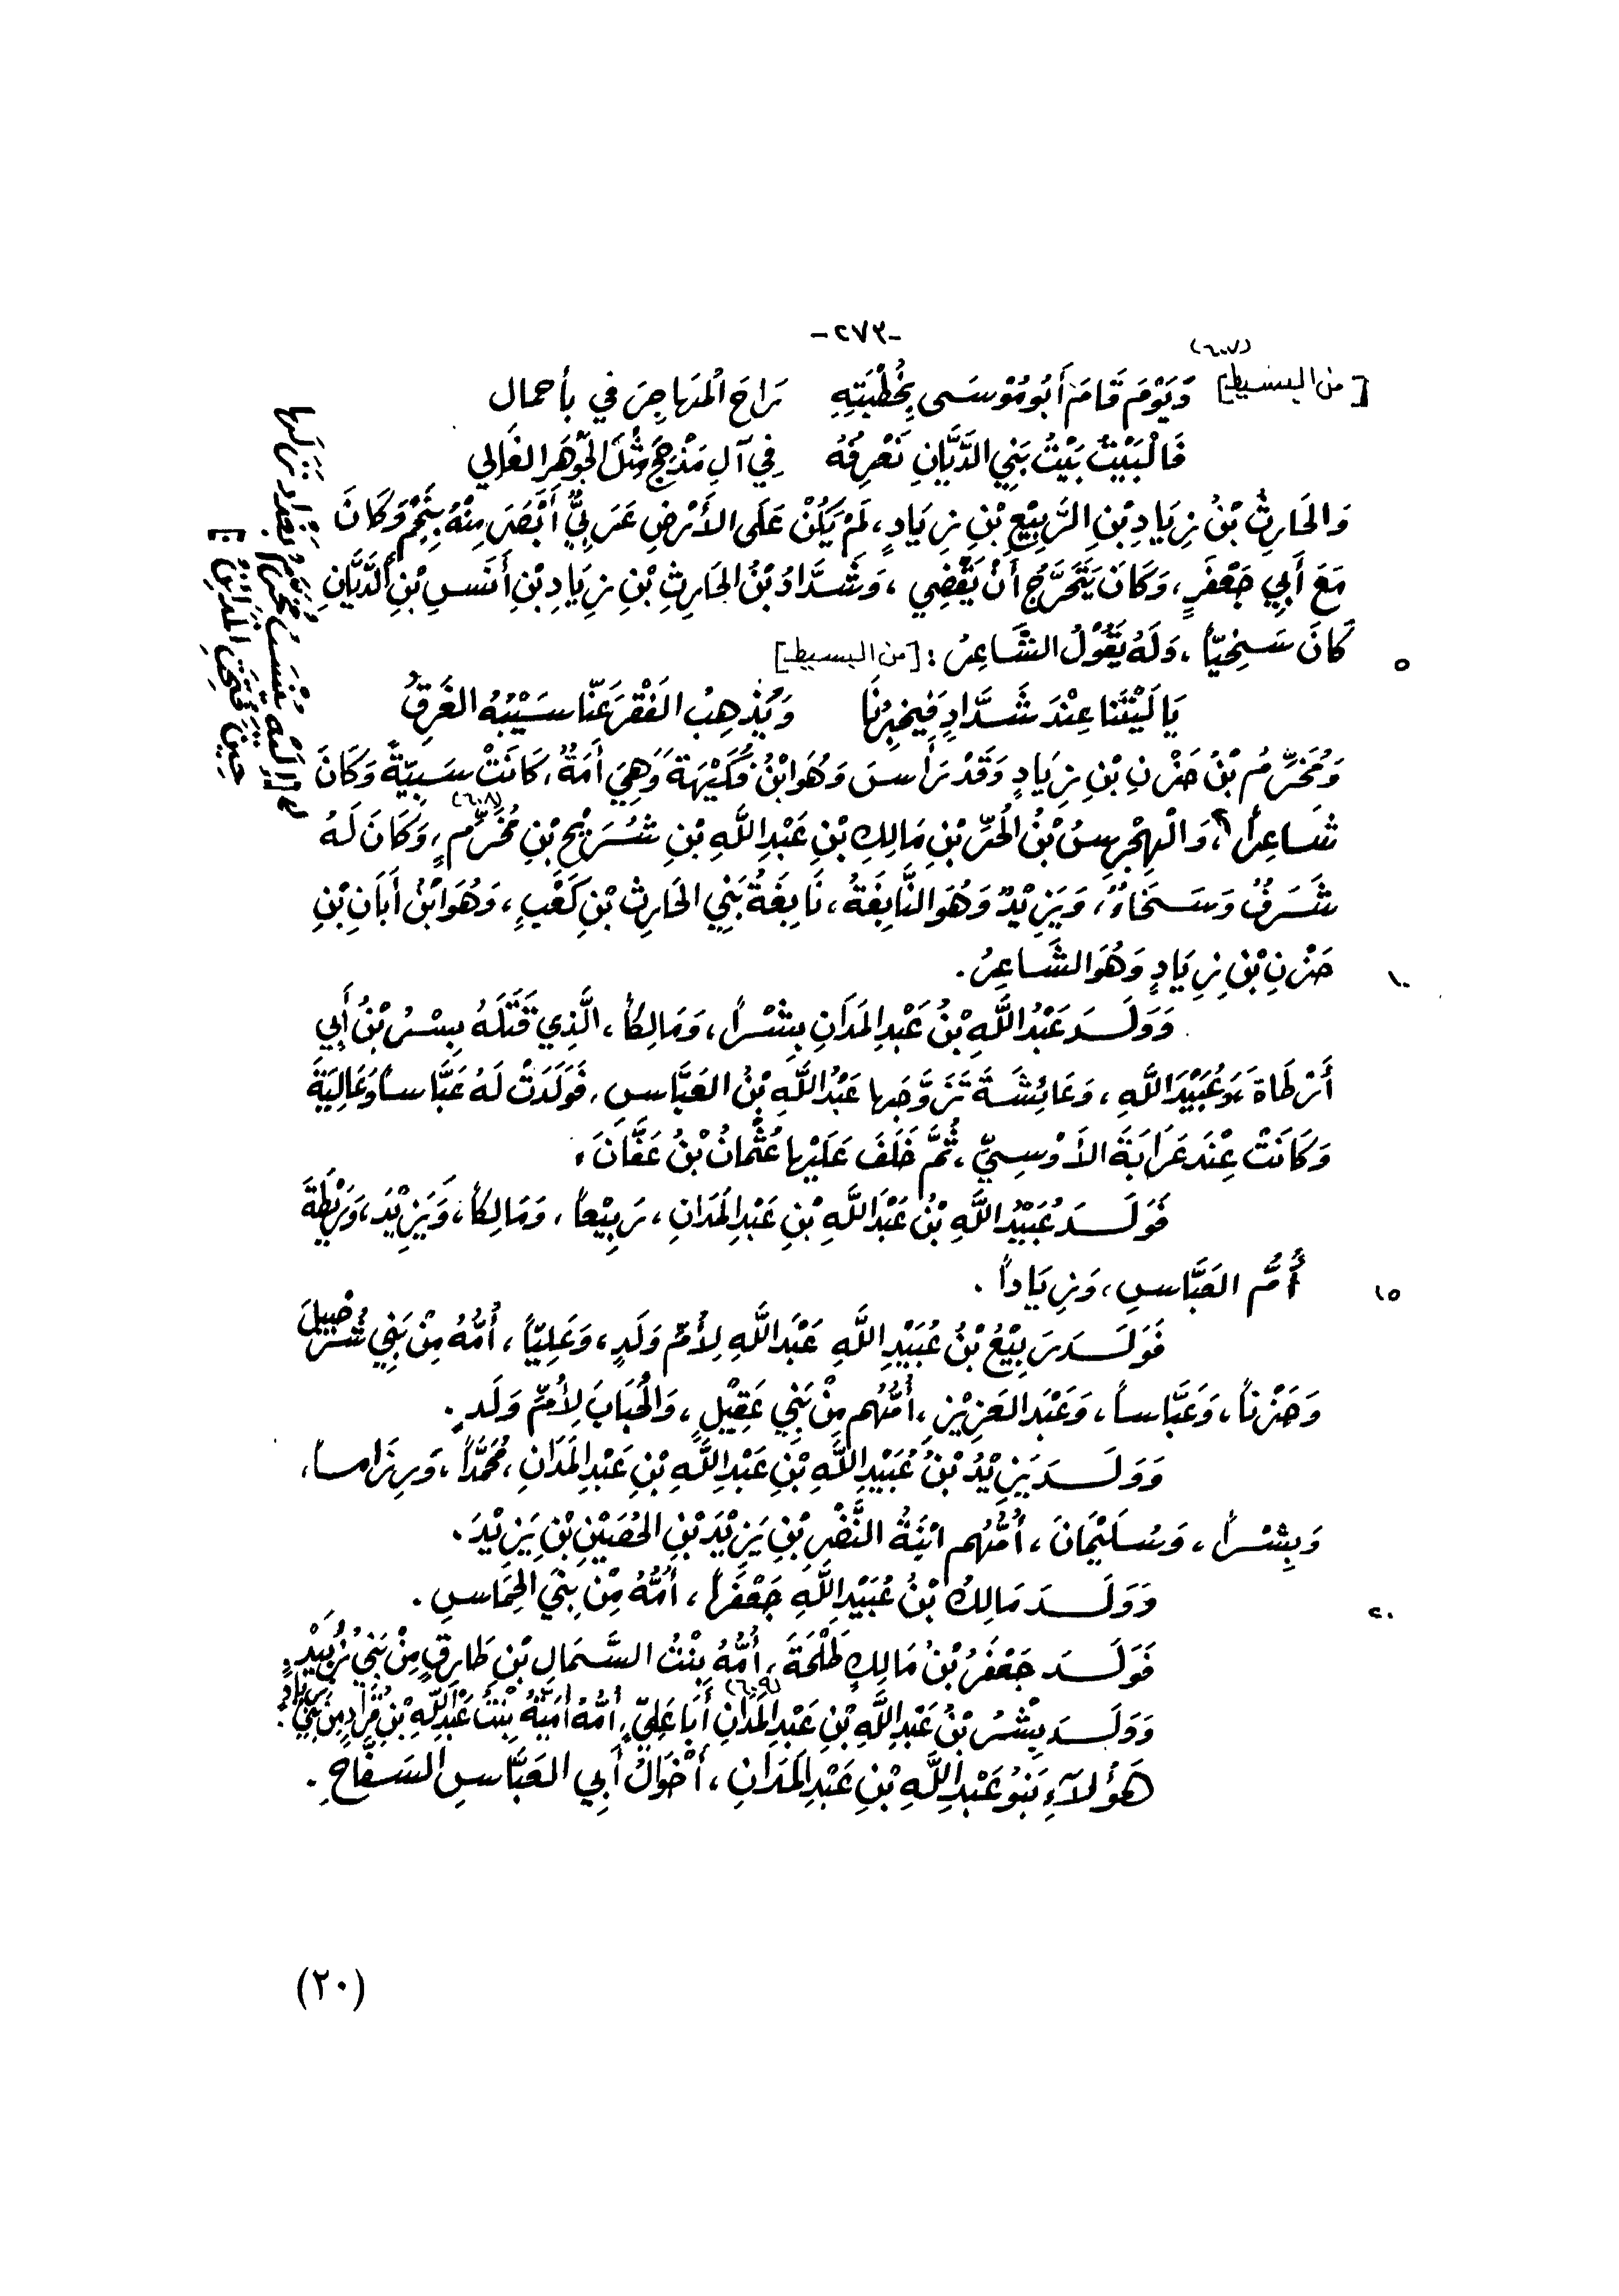 -٢٧٣-
(٦٠٧)
[من البسيط] وَيَوْمَ قَامَ أَبُو مُوْسَى بِخُطْبَتِهِ رَاحَ الْمُهَاجِرَ في بأجمال
فَالْبَيْتُ بَيْتُ بَنِي الدَّيَّانِ نَعْرِفُهُ فِي آلِ مَذْحِجَ مِثْلَ الجَوْهَرِ الغَالِي
وَالحَارِثُ بْنُ زِيَادِ بْنِ الرَّبِيْعِ بْنِ زِيَادٍ، لَمْ يَكُنْ عَلَى الأَرْضِ عَرَبِيٌّ أَبْصَرَ مِنْهُ بِنَجْمٍ وَكَانَ
مَعَ أَبِي جَعْفَرٍ، وَكَانَ يَتَحَرَّجُ أَنْ يَقْضِي، وَشَدَّادُ بْنُ الحَارِثِ بْنِ زِيَادِ بْنِ أَنَسِ بْنِ الدَّيَّانِ
٥ كَانَ سَخِيّاً، وَلَهُ يَقُوْلُ الشَّاعِرُ: [من البسيط]
يَا لَيْتَنَا عِنْدَ شَدَّادٍ فَيُخْبِرُنَا وَيُذْهِبُ الفَقْرَ عَنّا سَيْبُهُ الغَرِقُ
وَمُخَرِّمُ بْنُ حَزْنِ بْنِ زِيَادٍ وَقَدْ رَأَسَ وَهُوَ ابْنُ فُكَيْهَةَ وَهِيَ أَمَةٌ، كَانَتْ سَبِيَّةً وَكَانَ
شَاعِراً، وَالْهِجْرِسُ بْنُ الحُرِّ بْنِ مَالِكِ بْنِ عَبْدِ اللَّهِ بْنِ شُرَيْحِ بْنِ مُخَرِّمٍ (٦٠٨)، وَكَانَ لَهُ
شَرَفٌ وَسَخَاءٌ، وَيَزِيْدُ وَهُوَ النَّابِغَةُ، نَابِغَةُ بَنِي الحَارِثِ بْنِ كَعْبٍ، وَهُوَ ابْنُ أَبَانِ بْنِ
١٠ حَزْنِ بْنِ زِيَادٍ وَهُوَ الشَّاعِرُ.
وَوَلَدَ عَبْدُ اللَّهِ بْنُ عَبْدِ المَدَانِ بِشْراً، وَمَالِكاً، الَّذِي قَتَلَهُ بِسْرُ بْنُ أَبِي
أَرْطَاةَ، وَعُبَيْدَ اللَّهِ، وَعَائِشَةَ تَزَوَّجَها عَبْدُ اللَّهِ بْنُ العَبَّاسِ، فَوَلَدَتْ لَهُ عَبَّاساً وَعَالِيَةَ
وَكَانَتْ عِنْدَ عَرَابَةَ الأَوْسِيِّ، ثُمَّ خَلَفَ عَلَيْها عُثْمَانُ بْنُ عَفَّانَ.
فَوَلَدَ عُبَيْدُ اللَّهِ بْنُ عَبْدِ اللَّهِ بْنِ عَبْدِ المَدَانِ، رَبِيْعاً، وَمَالِكاً، وَيَزِيْدَ، وَرَيْطَةَ
١٥ أُمَّ العَبَّاسِ، وَزِيَاداً.
فَوَلَدَ رَبِيْعُ بْنُ عُبَيْدِ اللَّهِ عَبْدَ اللَّهِ لِأُمِّ وَلَدٍ، وَعَلِيّاً، أُمُّهُ مِنْ بَنِي شُرَحْبِيلَ
وَحَزْناً، وَعَبَّاساً، وَعَبْدَ العَزِيْزِ، أُمُّهُم مِنْ بَنِي عَقِيْلٍ، وَالحُبَابَ لِأُمِّ وَلَدٍ.
وَوَلَدَ يَزِيْدُ بْنُ عُبَيْدِ اللَّهِ بْنِ عَبْدِ اللَّهِ بْنِ عَبْدِ المَدَانِ، مُحَمَّداً، وَرِزَاماً،
وَبِشْراً، وَسُلَيْمَانَ، أُمُّهُم ابْنَةُ النَّضْرِ بْنِ يَزِيْدَ بْنِ الحُصَيْنِ بْنِ يَزِيْدَ.
٢٠ وَوَلَدَ مَالِكُ بْنُ عُبَيْدِ اللَّهِ جَعْفَراً، أُمُّهُ مِنْ بَنِي الحِمَاسِ.
فَوَلَدَ جَعْفَرُ بْنُ مَالِكٍ طَلْحَةَ، أُمُّهُ بِنْتُ السَّمَّالِ بْنِ طَارِقٍ مِنْ بَنِي زُبَيْدٍ.
وَوَلَدَ بِشْرُ بْنُ عَبْدِ اللَّهِ بْنِ عَبْدِ المَدَانِ (٦٠٩) أَبَا عَلِيٍّ، أُمُّهُ أُمَيَّةُ بِنْتُ عَبْدِ اللَّهِ بْنِ قُرَادٍ مِنْ بَنِي زِيَادٍ.
هَؤُلاَءِ بَنُو عَبْدِ اللَّهِ بْنِ عَبْدِ المَدَانِ، أَخْوَالُ أَبِي العَبَّاسِ السَّفَّاحِ.
وَإِلَيْهِ نُسِبَ مُخَرِّمُ بَغْدَادَ نَزَلَها
حِيْنَ فُتِحَتِ المَدَائِنُ]
(٢٠)